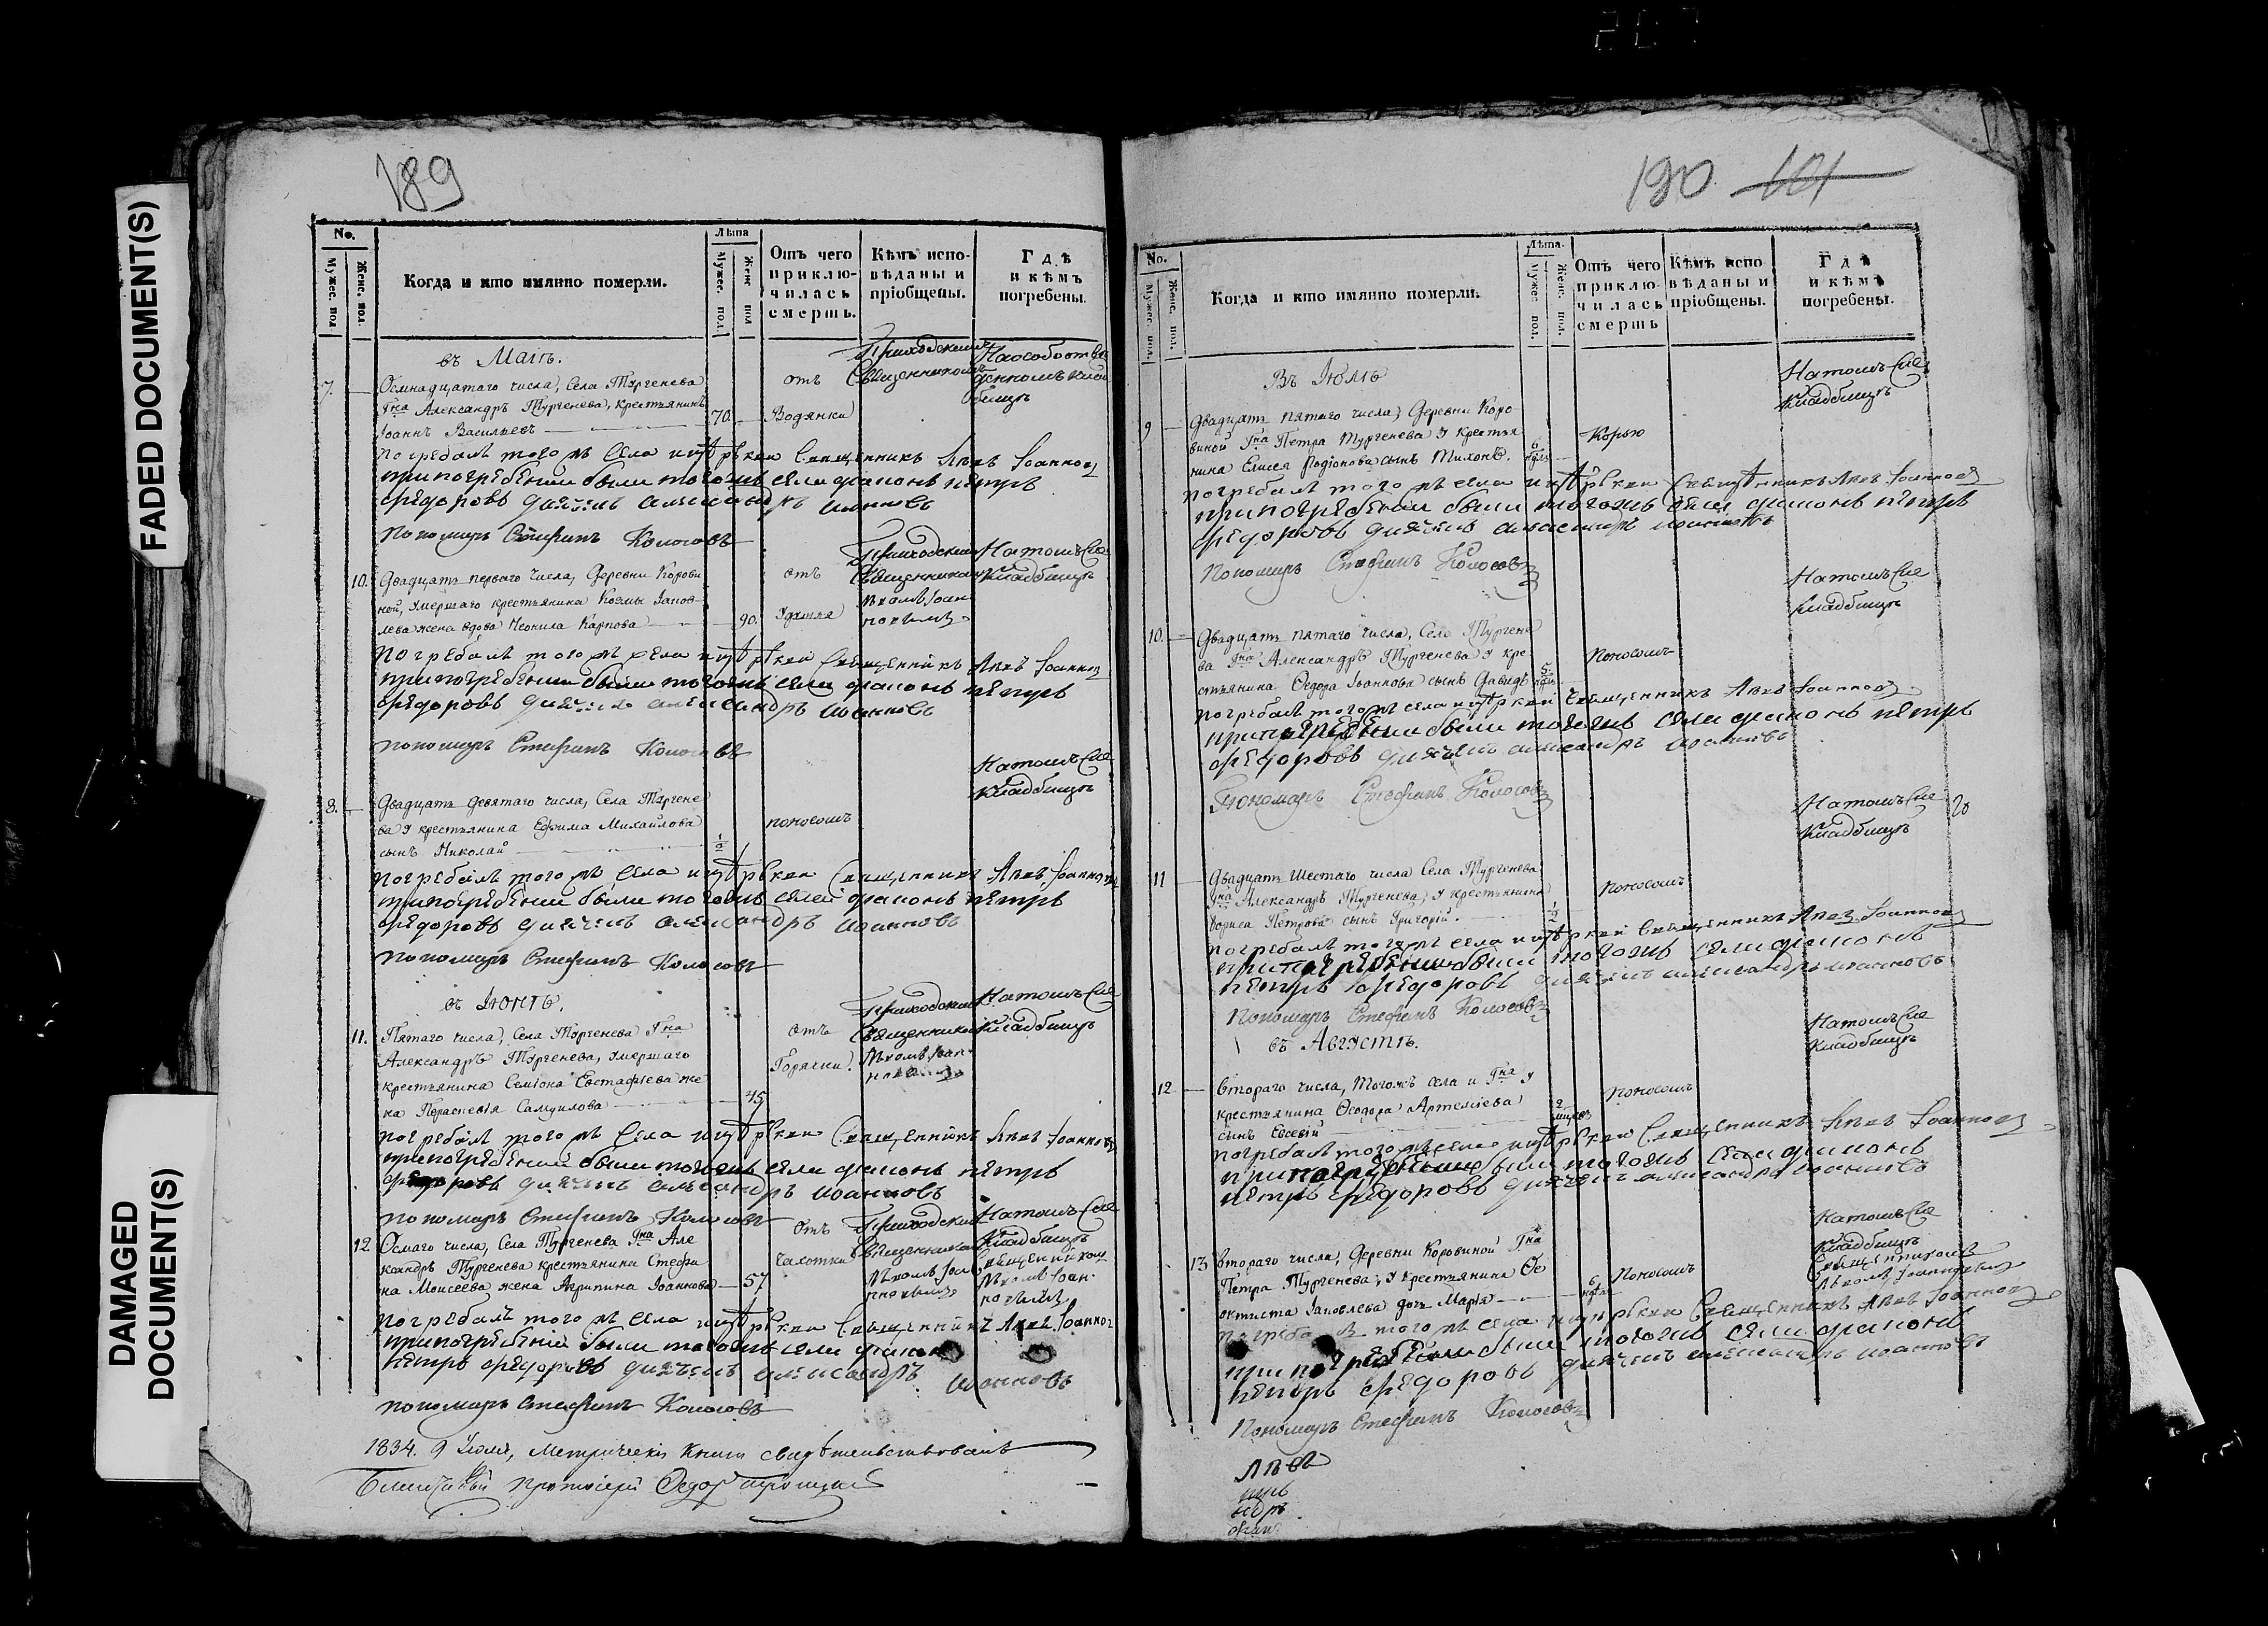 FADED DOCUMENT(S)
DAMAGED
DOCUMENT(S)
189
No.
Мужес. пол
Женс. пол.
Когда и кто имянно померли.
Лѣта
Мужес. пол.
Женс. пол
Отъ чего
приклю-
чилась
смерть.
Кѣмъ испо-
вѣданы и
пріобщены.
Гдѣ
и кѣмъ
погребены.
въ Маіѣ.
7.
Осмнадцатаго числа, Села Тургенева
Гна Александръ Тургенева, крестьянинъ
Іоаннъ Васильевъ
70.
отъ
Водянки
Приходскимъ
Священникомъ
погребалъ того жъ села Священникъ Іоанновъ
при погребеніи были тогожъ села діаконъ петръ
федоровъ дьячекъ александръ иоанновъ
пономарь Стефанъ Колосовъ
10.
Двадцать перваго числа, Деревни Корови
ной, умершаго крестьянина Козмы Іаков-
лева жена вдова Неонила Карпова
90.
отъ
Приходскимъ
Священникомъ
На томъ же
кладбищѣ
погребалъ того жъ села Священникъ Іоанновъ
при погребеніи были тогожъ села діаконъ петръ
федоровъ дьячекъ александръ иоанновъ
пономарь Стефанъ Колосовъ
8.
Двадцать девятаго числа, Села Тургене
ва у крестьянина Ефима Михайлова
сынъ Николай
поносомъ
На томъ же
кладбищѣ
погребалъ того жъ села Священникъ Іоанновъ
при погребеніи были тогожъ села діаконъ петръ
федоровъ дьячекъ александръ иоанновъ
пономарь Стефанъ Колосовъ
въ Іюнѣ.
11.
Пятаго числа, Села Тургенева Гна
Александръ Тургенева, умершаго
крестьянина Семіона Евстафіева же
на Параскевія Самуилова
45
отъ
Горячки
Приходскимъ
Священникомъ
На томъ же
кладбищѣ
погребалъ того жъ села Священникъ Іоанновъ
при погребеніи были тогожъ села діаконъ петръ
федоровъ дьячекъ александръ иоанновъ
пономарь Стефанъ Колосовъ
12
Осмаго числа, Села Тургенева Гна Але
ксандръ Тургенева крестьянина Стефа
на Моисеева жена Акрипина Іоаннова
57
отъ
Чахотки
Приходскимъ
Священникомъ
На томъ же
кладбищѣ
Священникомъ
погребалъ того жъ села Священникъ Іоаннов
при погребеніи были тогожъ села діакон
петръ федоровъ дьячекъ александръ иоанновъ
пономарь Стефанъ Колосовъ
1834. 9 Іюля, Метрическія книги свидѣтельствовалъ
Протоіерей Федор Троицкій
190
No.
Мужес. пол.
Женс. пол.
Когда и кто имянно померли.
Лѣта.
Мужес. пол.
Женс. пол.
Отъ чего
приклю-
чилась
смерть
Кѣмъ испо
вѣданы и
пріобщены.
Гдѣ
и кѣмъ
погребены.
Въ Іюлѣ
9
Двадцать пятаго числа, Деревни Коро
виной Гна Петра Тургенева у крестья
нина Елисея Родіонова сынъ Тихонъ.
6
Корью
На томъ же
кладбищѣ
погребалъ того жъ села Священникъ Іоанновъ
при погребеніи были тогожъ села діаконъ петръ
федоровъ дьячекъ александръ иоанновъ
Пономарь Стефанъ Колосовъ
10.
Двадцать пятаго числа, Села Тургене
ва Гна Александръ Тургенева у кре
стьянина Федора Іоаннова сынъ Давидъ
5
поносомъ
На томъ же
кладбищѣ
погребалъ того жъ села Священникъ Іоанновъ
при погребеніи были тогожъ села діаконъ петръ
федоровъ дьячекъ александръ иоанновъ
Пономарь Стефанъ Колосовъ
11
Двадцать Шестаго числа Села Тургенева
Гна Александръ Тургенева, у крестьянина
Бориса Петрова сынъ Григорій.
поносомъ
На томъ же
кладбищѣ
20
погребалъ того жъ села Священникъ Іоанновъ
при погребеніи были тогожъ села діаконъ
петръ федоровъ дьячекъ александръ иоанновъ
Пономарь Стефанъ Колосовъ
въ Августѣ.
12
Втораго числа, Тогожъ села и Гна у
крестьянина Феодора Артеміева
сынъ Евсевій
2
поносомъ
На томъ же
кладбищѣ
погребалъ того жъ села Священникъ Іоанновъ
при погребеніи были тогожъ села діаконъ
петръ федоровъ дьячекъ александръ иоанновъ
13
Втораго числа, Деревни Коровиной Гна
Петра Тургенева, у крестьянина Фе
октиста Іаковлева дочь Марія
6
поносомъ
На томъ же
кладбищѣ
Священникомъ
погребалъ того жъ села Священникъ Іоанновъ
при погребеніи были тогожъ села діаконъ
петръ федоровъ дьячекъ александръ иоанновъ
Пономарь Стефанъ Колосовъ